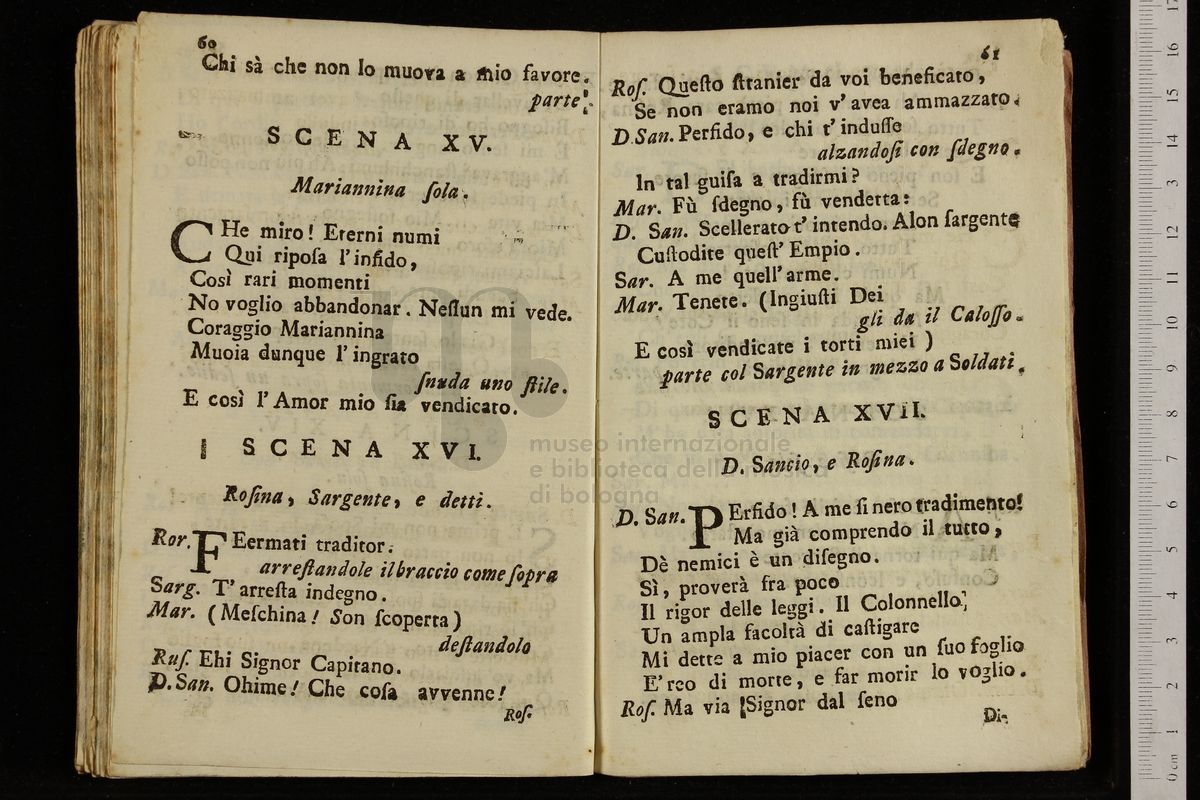 60
Chi sà che non lo muova a mio favore.
parte.
SCENA XV.
Mariannina ſola.
CHe miro! Eterni numi
Qui ripoſa l'infido,
Così rari momenti
No voglio abbandonar. Neſſun mi vede.
Coraggio Mariannina
Muoia dunque l'ingrato
ſnuda uno ſtile.
E così l'Amor mio ſia vendicato.
SCENA XVI.
Roſina, Sargente, e detti.
Ror. FEermati traditor.
arreſtandole il braccio come ſopra
Sarg. T' arreſta indegno.
Mar. (Meſchina! Son ſcoperta)
deſtandolo
Ruſ. Ehi Signor Capitano.
D. San. Ohime! Che coſa avvenne!
Roſ.
61
Roſ. Queſto ſtranier da voi beneficato,
Se non eramo noi v' avea ammazzato.
D. San. Perfido, e chi t' induſſe
alzandoſi con ſdegno.
In tal guiſa a tradirmi?
Mar. Fù ſdegno, fù vendetta:
D. San. Scellerato t' intendo. Alon ſargente
Cuſtodite queſt' Empio.
Sar. A me quell' arme.
Mar. Tenete. (Ingiuſti Dei
gli da il Caloſſo.
E così vendicate i torti miei )
parte col Sargente in mezzo a Soldati.
SCENA XVII.
D. Sancio, e Roſina.
D. San. PErfido! A me ſi nero tradimento!
Ma già comprendo il tutto,
Dè nemici è un diſegno.
Sì, proverà fra poco
Il rigor delle leggi. Il Colonnello,
Un ampla facoltà di caſtigare
Mi dette a mio piacer con un ſuo foglio
E' reo di morte, e far morir lo voglio.
Roſ. Ma via Signor dal ſeno
Di-
museo internazionale
e biblioteca della musica
di bologna
0 cm 1 2 3 4 5 6 7 8 9 10 11 12 13 14 15 16 17